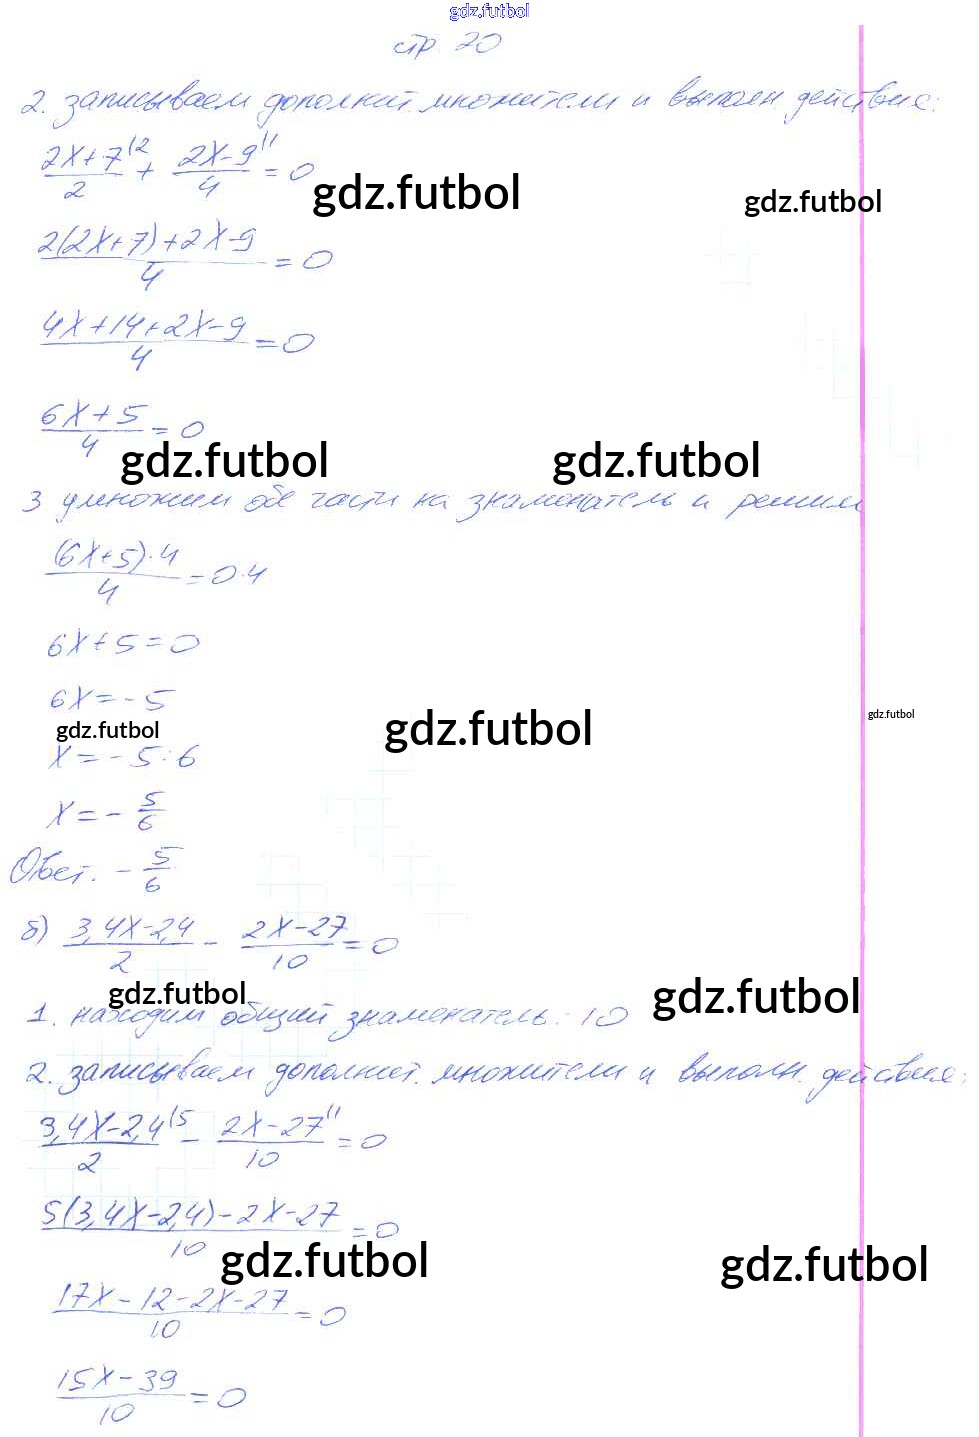 gdz.futbol
стр. 20
2. записываем дополнит. множители и выполн действие:
(2x+7)/2 ⁽² + (2x-9)/4 ⁽¹ = 0
gdz.futbol gdz.futbol
(2(2x+7)+2x-9)/4 = 0
(4x+14+2x-9)/4 = 0
(6x+5)/4 = 0
gdz.futbol gdz.futbol
3 умножим обе части на знаменатель и решим
((6x+5)·4)/4 = 0·4
6x+5=0
6x=-5
gdz.futbol gdz.futbol gdz.futbol
x=-5:6
x=-5/6
Ответ. -5/6
б) (3,4x-2,4)/2 - (2x-27)/10 = 0
gdz.futbol gdz.futbol
1. находим общий знаменатель: 10
2. записываем дополнит. множители и выполн. действие:
(3,4x-2,4)/2 ⁽⁵ - (2x-27)/10 ⁽¹ = 0
(5(3,4x-2,4)-2x-27)/10 = 0
gdz.futbol gdz.futbol
(17x-12-2x-27)/10 = 0
(15x-39)/10 = 0